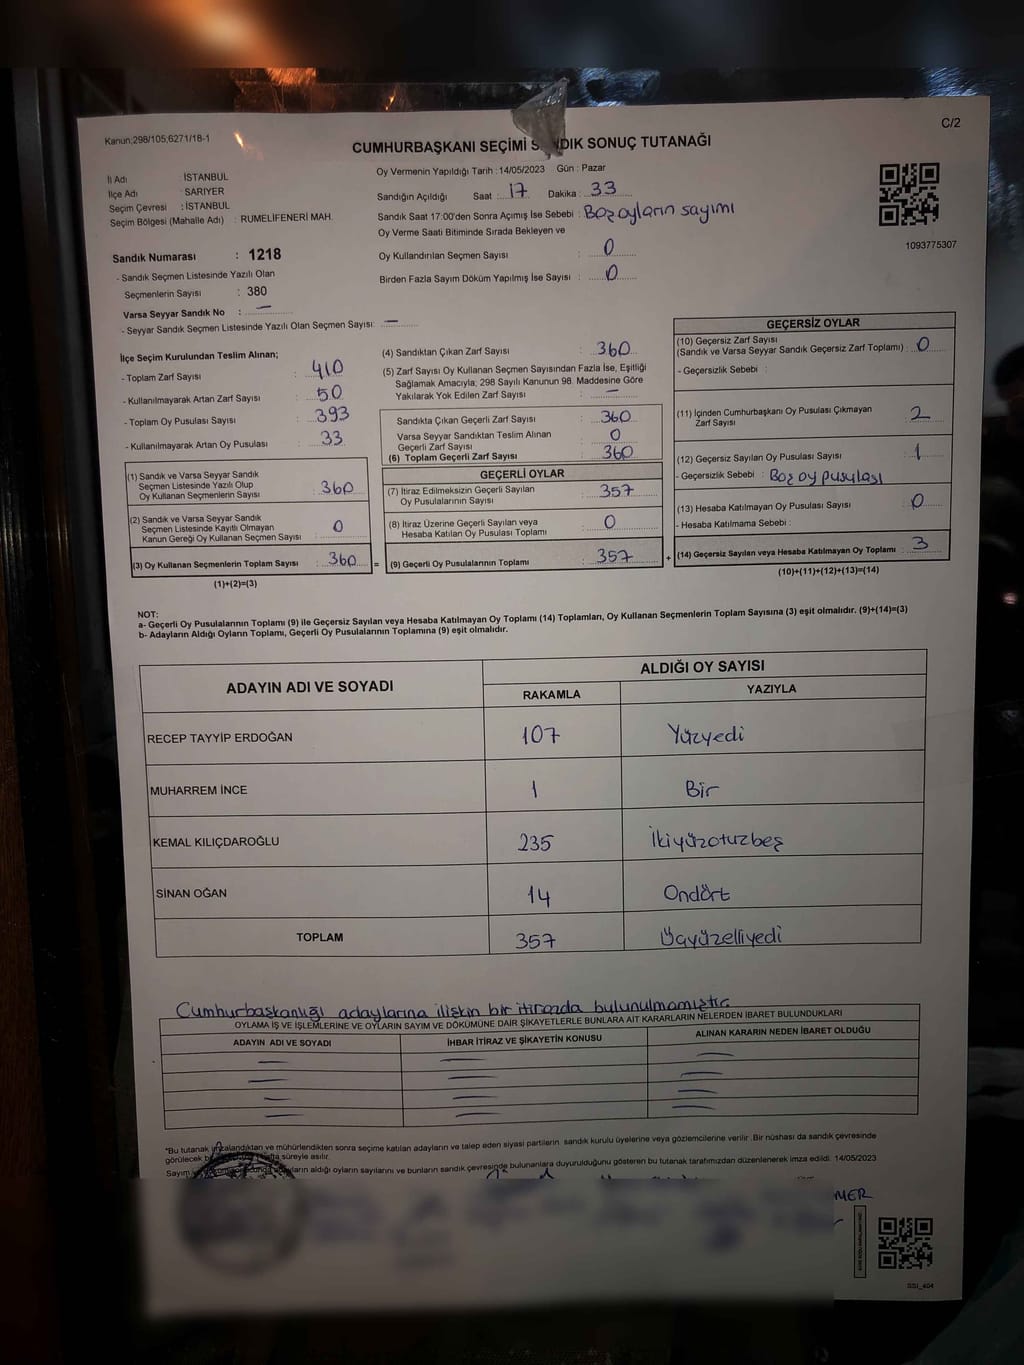 Kanun:298/105,6271/18-1
C/2
CUMHURBAŞKANI SEÇİMİ SANDIK SONUÇ TUTANAĞI
İl Adı : İSTANBUL
İlçe Adı : SARIYER
Seçim Çevresi : İSTANBUL
Seçim Bölgesi (Mahalle Adı) : RUMELİFENERİ MAH.
Oy Vermenin Yapıldığı Tarih : 14/05/2023 Gün : Pazar
Sandığın Açıldığı Saat : 17 Dakika : 33
Sandık Saat 17:00'den Sonra Açımış İse Sebebi : Boz oyların sayımı
Oy Verme Saati Bitiminde Sırada Bekleyen ve
Oy Kullandırılan Seçmen Sayısı : 0
Birden Fazla Sayım Döküm Yapılmış İse Sayısı : 0
1093775307
Sandık Numarası : 1218
- Sandık Seçmen Listesinde Yazılı Olan
Seçmenlerin Sayısı : 380
Varsa Seyyar Sandık No : —
- Seyyar Sandık Seçmen Listesinde Yazılı Olan Seçmen Sayısı: —
İlçe Seçim Kurulundan Teslim Alınan;
- Toplam Zarf Sayısı : 410
- Kullanılmayarak Artan Zarf Sayısı : 50
- Toplam Oy Pusulası Sayısı : 393
- Kullanılmayarak Artan Oy Pusulası : 33
(1) Sandık ve Varsa Seyyar Sandık
Seçmen Listesinde Yazılı Olup
Oy Kullanan Seçmenlerin Sayısı : 360
(2) Sandık ve Varsa Seyyar Sandık
Seçmen Listesinde Kayıtlı Olmayan
Kanun Gereği Oy Kullanan Seçmen Sayısı : 0
(3) Oy Kullanan Seçmenlerin Toplam Sayısı : 360 =
(1)+(2)=(3)
(4) Sandıktan Çıkan Zarf Sayısı : 360
(5) Zarf Sayısı Oy Kullanan Seçmen Sayısından Fazla İse, Eşitliği
Sağlamak Amacıyla; 298 Sayılı Kanunun 98. Maddesine Göre
Yakılarak Yok Edilen Zarf Sayısı : —
Sandıkta Çıkan Geçerli Zarf Sayısı : 360
Varsa Seyyar Sandıktan Teslim Alınan
Geçerli Zarf Sayısı : 0
(6) Toplam Geçerli Zarf Sayısı : 360
GEÇERLİ OYLAR
(7) İtiraz Edilmeksizin Geçerli Sayılan
Oy Pusulalarının Sayısı : 357
(8) İtiraz Üzerine Geçerli Sayılan veya
Hesaba Katılan Oy Pusulası Toplamı : 0
(9) Geçerli Oy Pusulalarının Toplamı : 357 +
GEÇERSİZ OYLAR
(10) Geçersiz Zarf Sayısı
(Sandık ve Varsa Seyyar Sandık Geçersiz Zarf Toplamı) : 0
- Geçersizlik Sebebi :
(11) İçinden Cumhurbaşkanı Oy Pusulası Çıkmayan
Zarf Sayısı : 2
(12) Geçersiz Sayılan Oy Pusulası Sayısı : 1
- Geçersizlik Sebebi : Boz oy pusulası
(13) Hesaba Katılmayan Oy Pusulası Sayısı : 0
- Hesaba Katılmama Sebebi :
(14) Geçersiz Sayılan veya Hesaba Katılmayan Oy Toplamı : 3
(10)+(11)+(12)+(13)=(14)
NOT:
a- Geçerli Oy Pusulalarının Toplamı (9) ile Geçersiz Sayılan veya Hesaba Katılmayan Oy Toplamı (14) Toplamları, Oy Kullanan Seçmenlerin Toplam Sayısına (3) eşit olmalıdır. (9)+(14)=(3)
b- Adayların Aldığı Oyların Toplamı, Geçerli Oy Pusulalarının Toplamına (9) eşit olmalıdır.
ADAYIN ADI VE SOYADI
ALDIĞI OY SAYISI
RAKAMLA YAZIYLA
RECEP TAYYİP ERDOĞAN 107 Yüzyedi
MUHARREM İNCE 1 Bir
KEMAL KILIÇDAROĞLU 235 İkiyüzotuzbeş
SİNAN OĞAN 14 Ondört
TOPLAM 357 Üçyüzelliyedi
Cumhurbaşkanlığı adaylarına ilişkin bir itirazda bulunulmamıştır
OYLAMA İŞ VE İŞLEMLERİNE VE OYLARIN SAYIM VE DÖKÜMÜNE DAİR ŞİKAYETLERLE BUNLARA AİT KARARLARIN NELERDEN İBARET BULUNDUKLARI
ADAYIN ADI VE SOYADI İHBAR İTİRAZ VE ŞİKAYETİN KONUSU ALINAN KARARIN NEDEN İBARET OLDUĞU
*Bu tutanak imzalandıktan ve mühürlendikten sonra seçime katılan adayların ve talep eden siyasi partilerin sandık kurulu üyelerine veya gözlemcilerine verilir. Bir nüshası da sandık çevresinde
görülecek süreyle asılır.
Sayım adayların aldığı oyların sayılarını ve bunların sandık çevresinde bulunanlara duyurulduğunu gösteren bu tutanak tarafımızdan düzenlenerek imza edildi. 14/05/2023
SSI_404